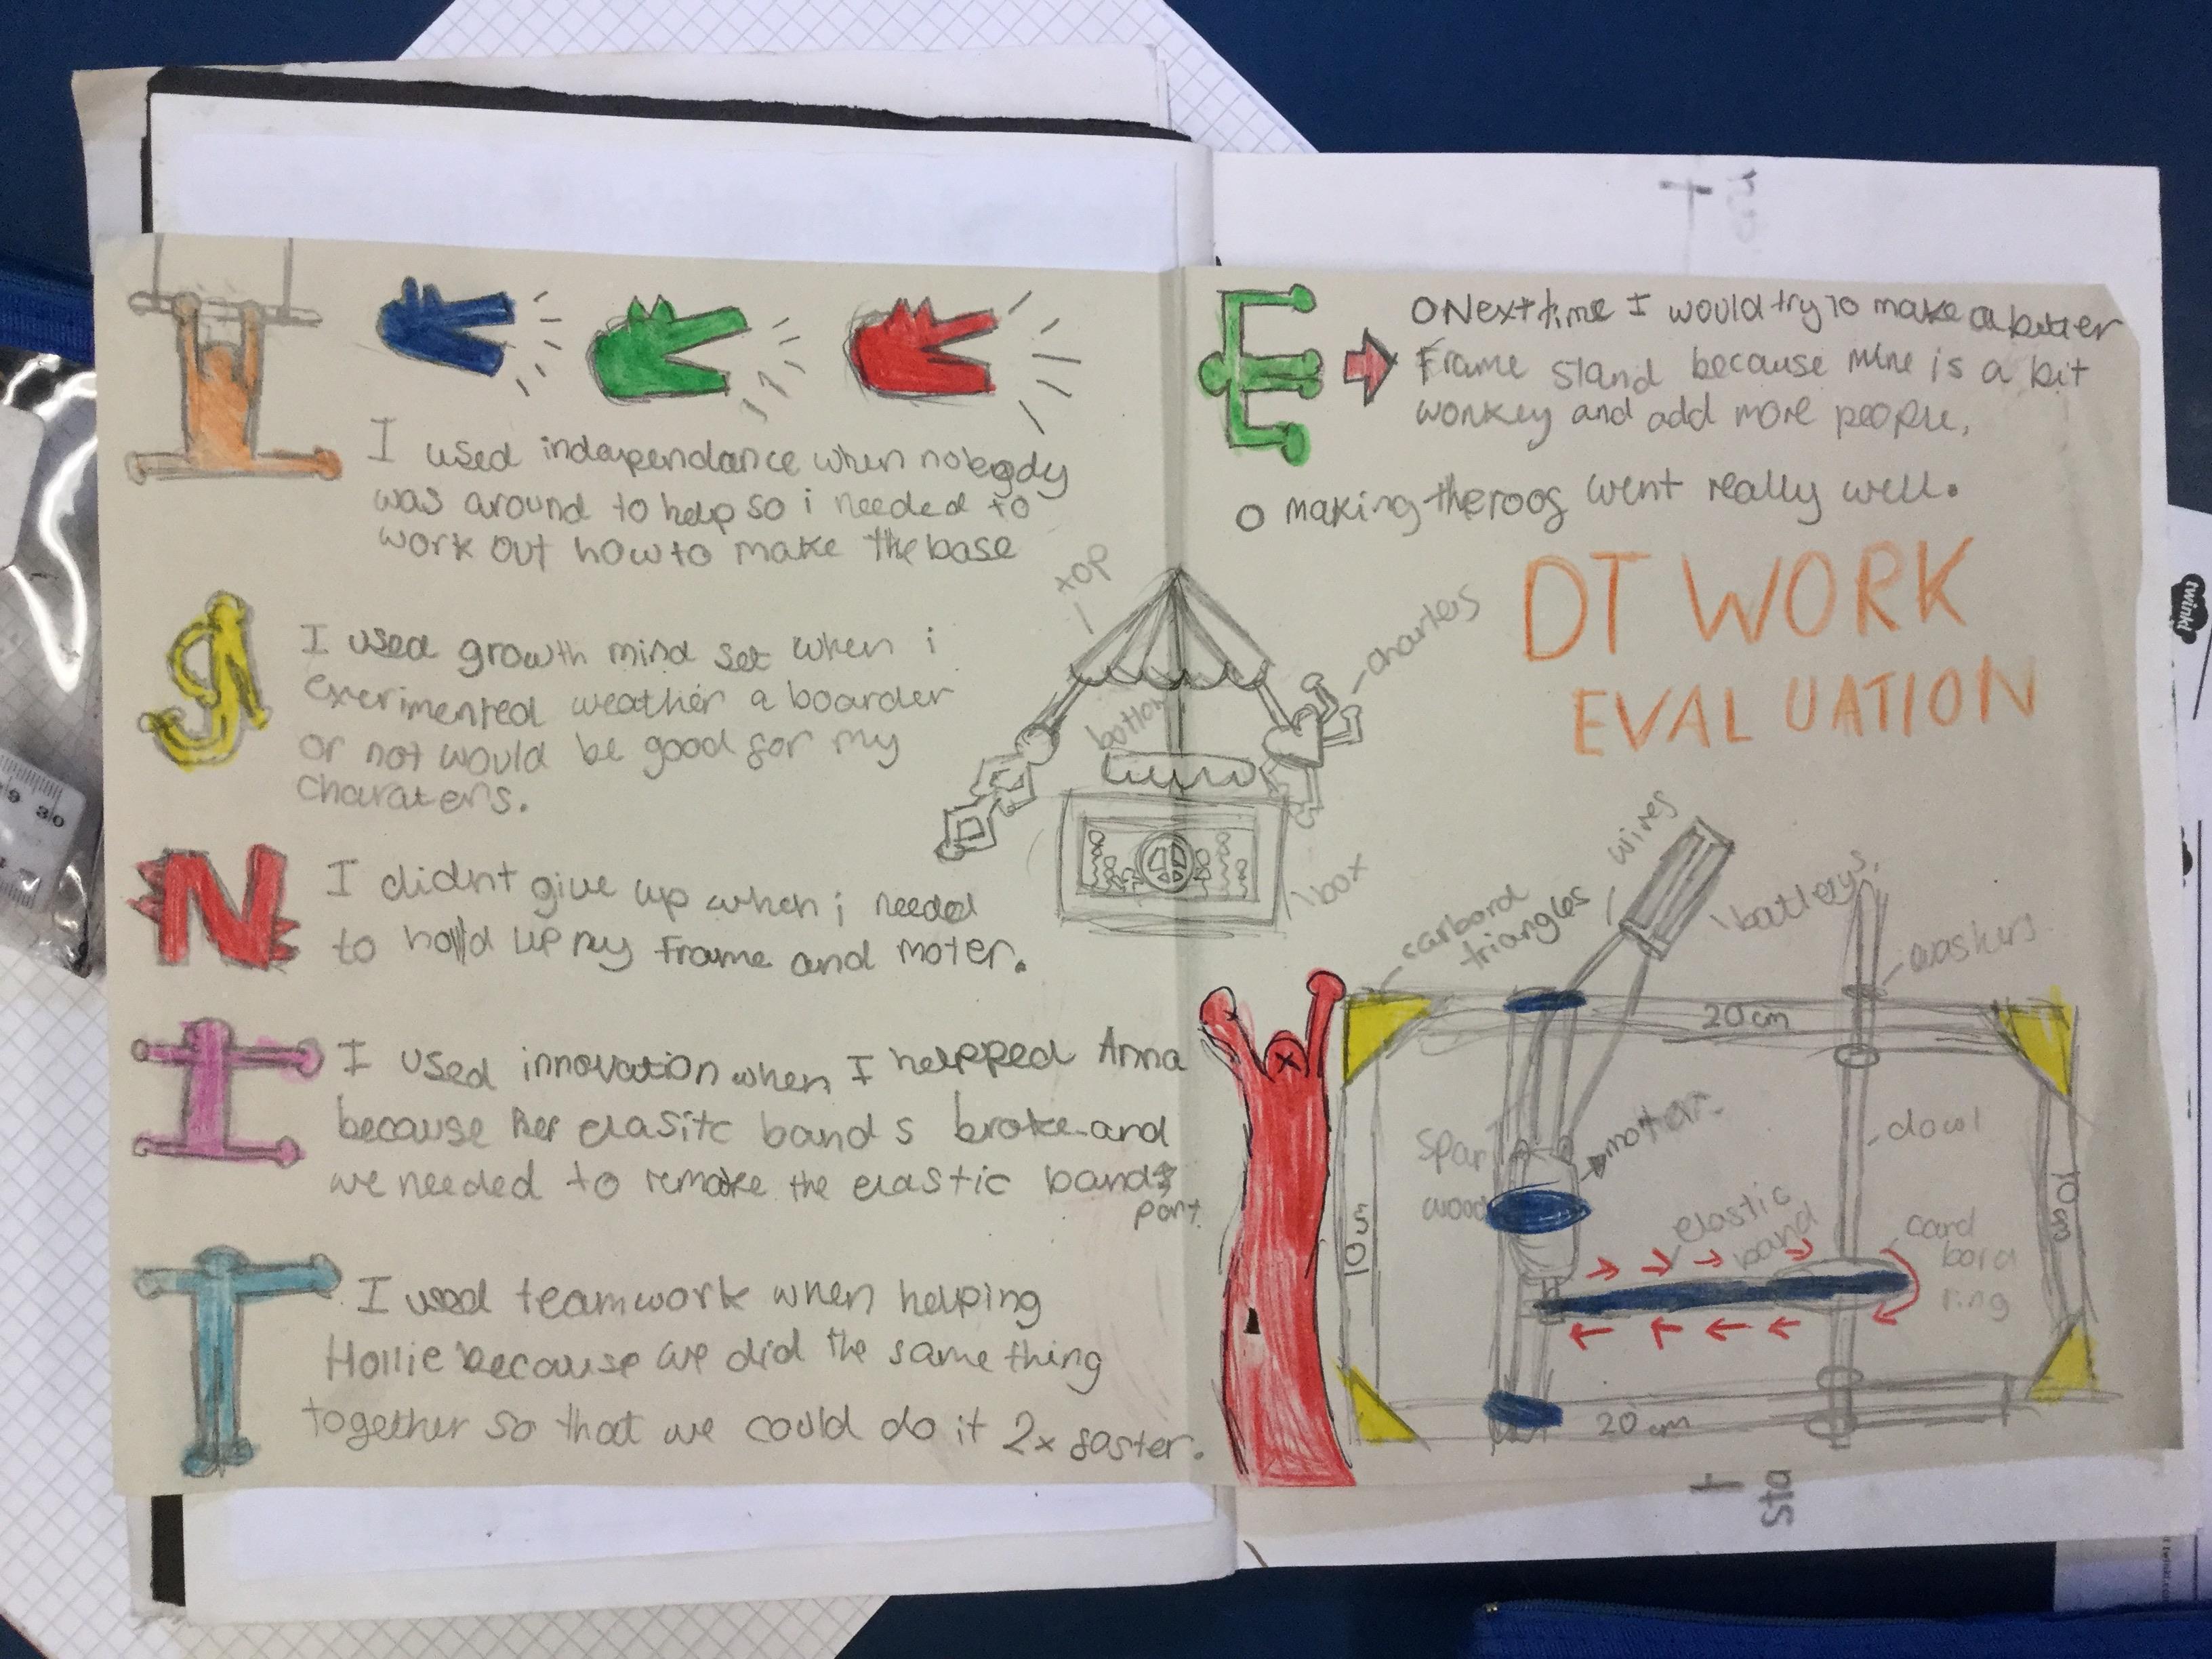 I used independance when nobody
was around to help so i needed to
work out how to make the base
g
I used growth mind set when i
experimented weather a boarder
or not would be good for my
charaters.
N
I didnt give up when i needed
to hold up my frame and moter.
I
I used innovation when I helpped Anna
because her elasitc band s broke and
we needed to remake the elastic bands
part.
T
I used teamwork when helping
Hollie because we did the same thing
together so that we could do it 2x faster.
top
bottom
charters
box
E
Next time I would try to make a better
Frame stand because mine is a bit
wonkey and add more people.
making the roof went really well.
DT WORK
EVALUATION
wires
batterys.
carbord
triangles
washers
20cm
Spar
wood
motor
dowl
10cm
10cm
elastic
band
card
bord
ring
20cm
sta
twinkl
9
30